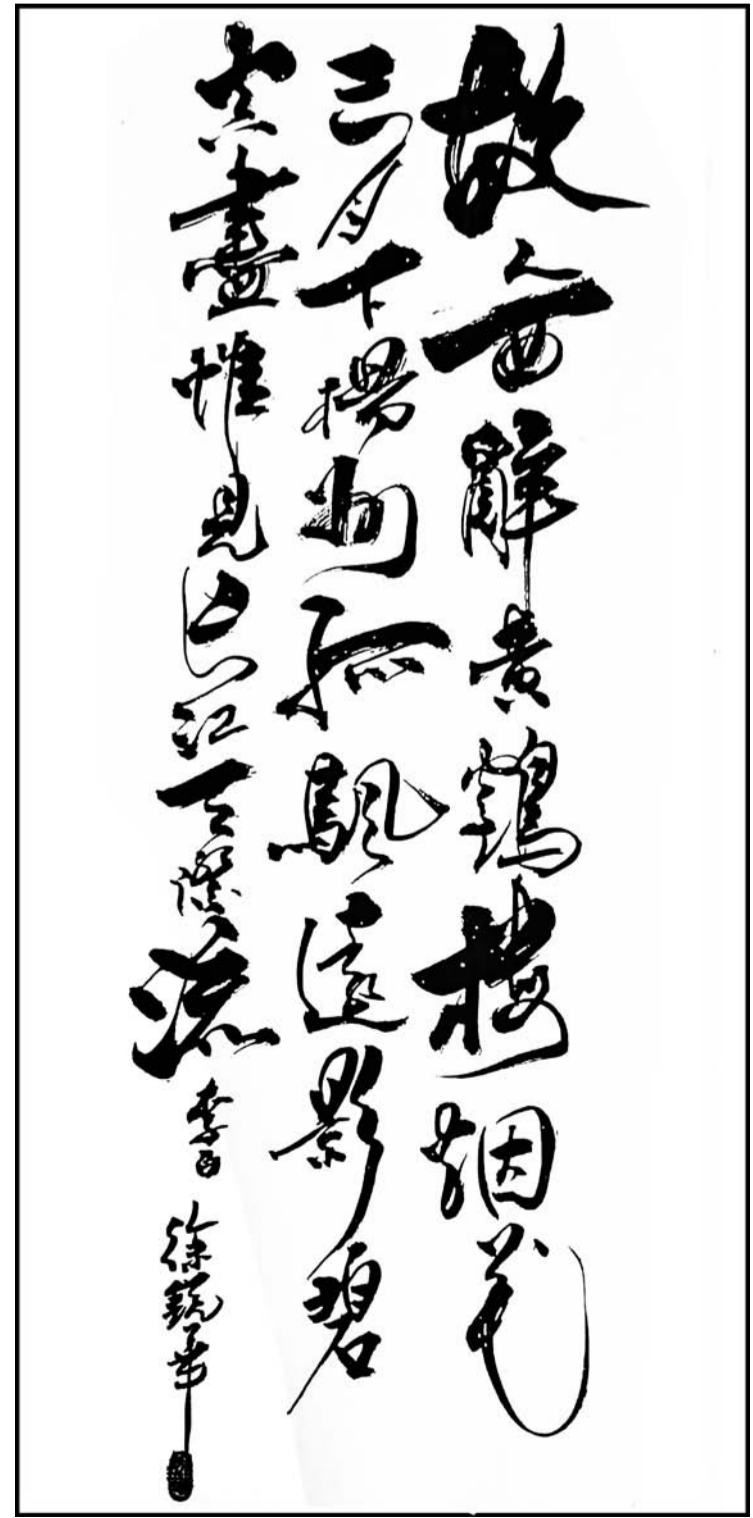 故人西辭黄鶴樓烟花
三月下揚州孤颿遠影碧
空盡惟見長江天際流 李白 徐銳華